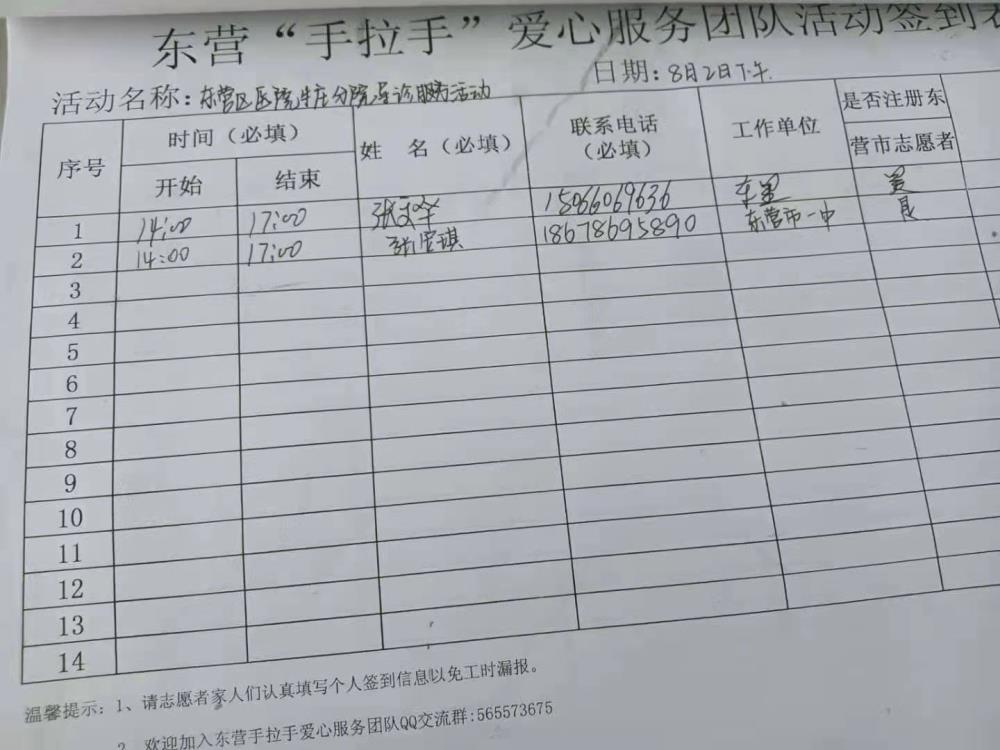 东营“手拉手”爱心服务团队活动签到表
日期：8月2日下午.
活动名称：东营区医院牛庄分院导诊服务活动
序号 时间（必填） 姓 名（必填） 联系电话（必填） 工作单位 是否注册东营市志愿者
开始 结束
1 14:00 17:00 15066069636 是
2 14:00 17:00 18678695890 东营市一中 是
3
4
5
6
7
8
9
10
11
12
13
14
温馨提示：1、请志愿者家人们认真填写个人签到信息以免工时漏报。
2、欢迎加入东营手拉手爱心服务团队QQ交流群:565573675